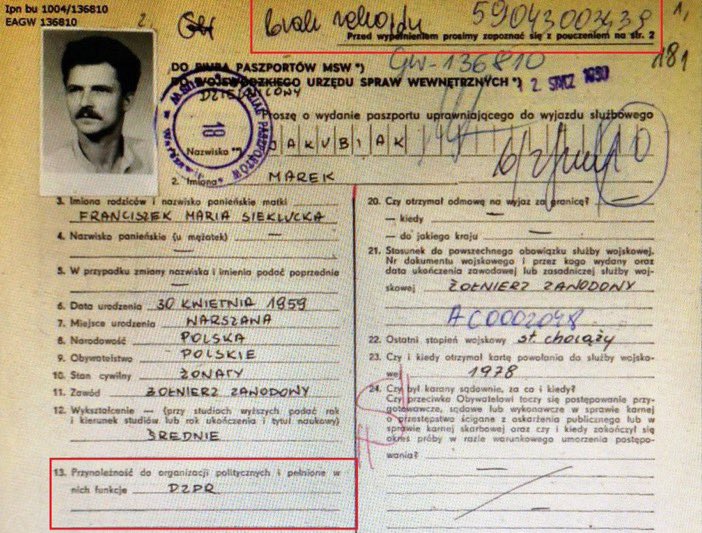 Ipn bu 1004/136810
EAGW 136810
Brak rekordu 59043003439 1,
Przed wypełnieniem prosimy zapoznać się z pouczeniem na str. 2
GW-136810 181
DO BIURA PASZPORTÓW MSW *)
DO WOJEWÓDZKIEGO URZĘDU SPRAW WEWNĘTRZNYCH *) 2 STYCZ 1990
Proszę o wydanie paszportu uprawniającego do wyjazdu służbowego
1. Nazwisko *) JAKUBIAK
2. Imiona MAREK
3. Imiona rodziców i nazwisko panieńskie matki
FRANCISZEK MARIA SIEKLUCKA
4. Nazwisko panieńskie (u mężatek) —
5. W przypadku zmiany nazwiska i imienia podać poprzednie
—
6. Data urodzenia 30 KWIETNIA 1959
7. Miejsce urodzenia WARSZAWA
8. Narodowość POLSKA
9. Obywatelstwo POLSKIE
10. Stan cywilny ŻONATY
11. Zawód ŻOŁNIERZ ZAWODOWY
12. Wykształcenie — (przy studiach wyższych podać rok
i kierunek studiów lub rok ukończenia i tytuł naukowy)
ŚREDNIE
13. Przynależność do organizacji politycznych i pełnione w
nich funkcje PZPR
20. Czy otrzymał odmowę na wyjaz za granicę? —
— kiedy —
— do jakiego kraju —
21. Stosunek do powszechnego obowiązku służby wojskowej.
Nr dokumentu wojskowego i przez kogo wydany oraz
data ukończenia zawodowej lub zasadniczej służby woj-
skowej ŻOŁNIERZ ZAWODOWY
AC0002048
22. Ostatni stopień wojskowy st. chorąży
23. Czy i kiedy otrzymał kartę powołania do służby wojsko-
wej 1978
24. Czy był karany sądownie, za co i kiedy?
Czy przeciwko Obywatelowi toczy się postępowanie przy-
gotowawcze, sądowe lub wykonawcze w sprawie karnej
o przestępstwo ścigane z oskarżenia publicznego lub w
sprawie karnej skarbowej oraz czy i kiedy zakończył się
okres próby w razie warunkowego umorzenia postępo-
wania? —